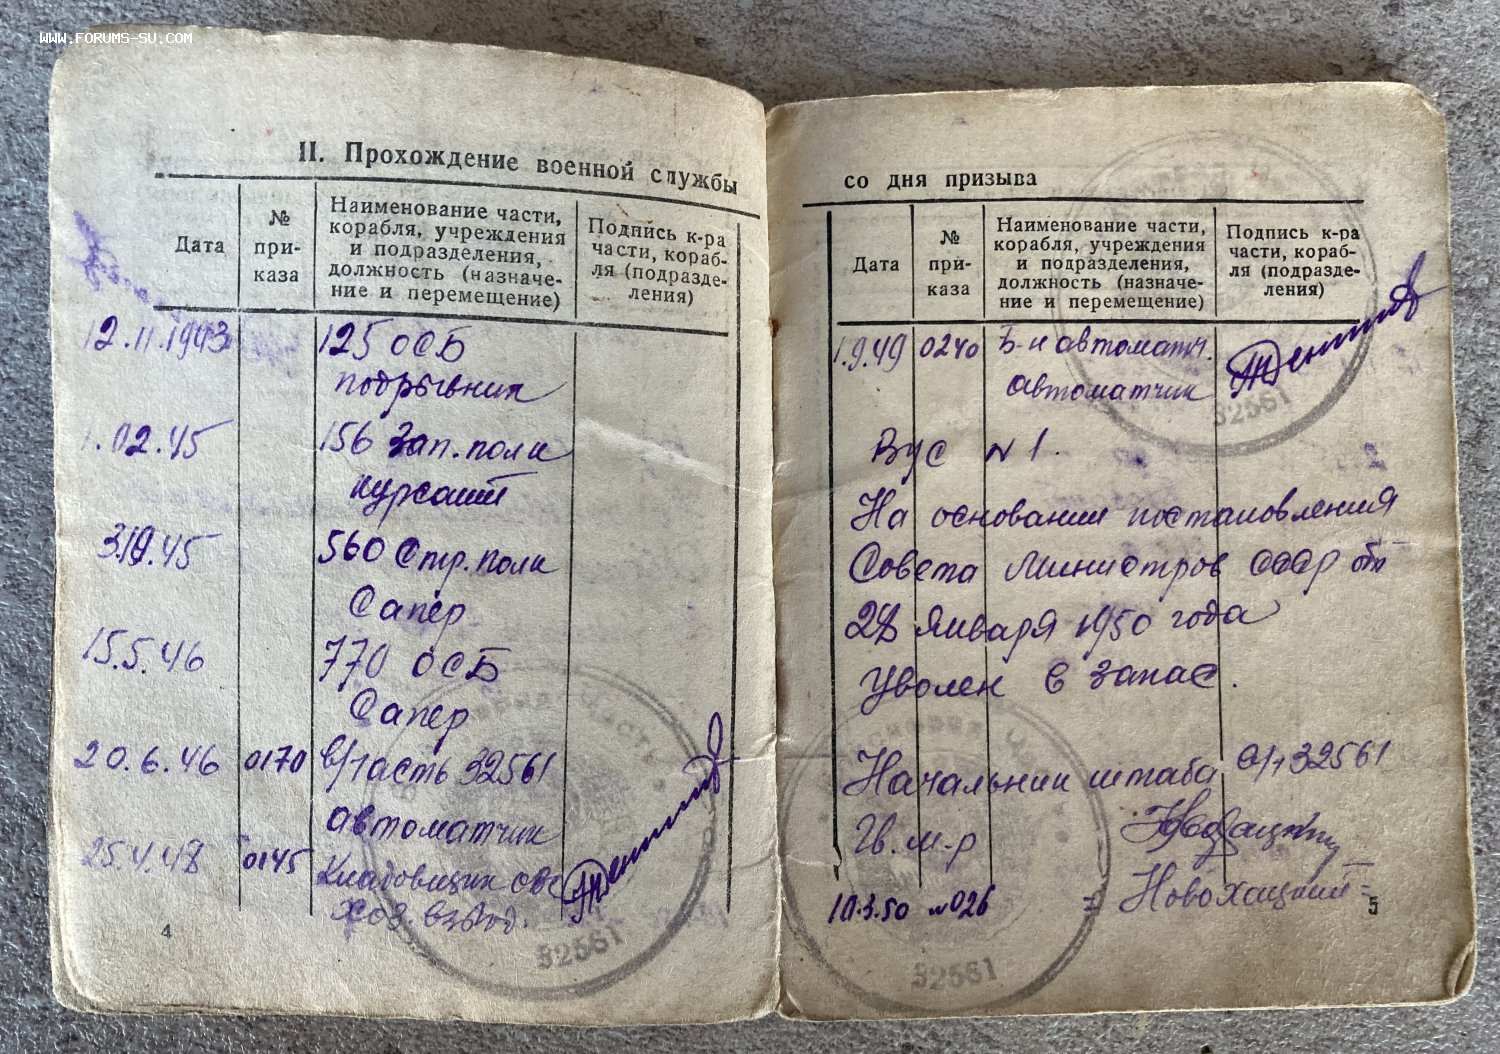 WWW.FORUMS-SU.COM
II. Прохождение военной службы
Дата
№ при-каза
Наименование части,
корабля, учреждения
и подразделения,
должность (назначе-
ние и перемещение)
Подпись к-ра
части, кораб-
ля (подразде-
ления)
12.11.1943 125 ОСБ
подрывник
1.02.45 156 Зап. полк
курсант
45 560 Стр. полк
Сапер
15.5.46 770 ОСБ
Сапер
20.6.46 0170 в/часть 32561
автоматчик
25.4.48 0145 Кладовщик
хоз. взвод.
32561
4
со дня призыва
Дата
№ при-каза
Наименование части,
корабля, учреждения
и подразделения,
должность (назначе-
ние и перемещение)
Подпись к-ра
части, кораб-
ля (подразде-
ления)
1.9.49 0240 Б-н автоматч.
автоматчик
32561
Вус N 1.
На основании постановления
Совета Министров СССР от
28 Января 1950 года
Уволен в запас.
Начальник штаба в/ч 32561
Гв. м-р
Новохацкий
10.3.50 №026
32561
5